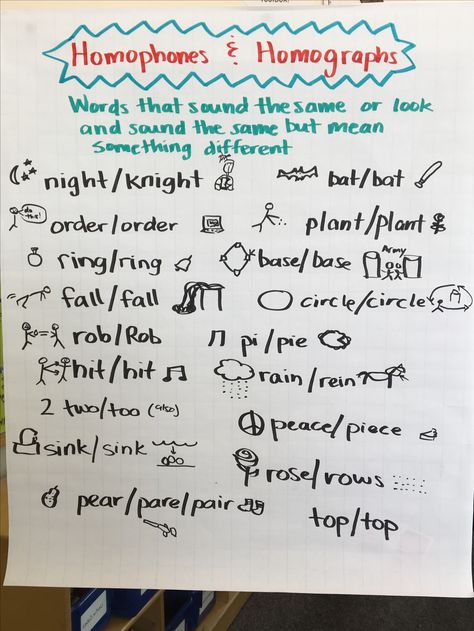 Homophones & Homographs
Words that sound the same or look
and sound the same but mean
something different
night/knight
bat/bat
do this!
order/order
plant/plant
ring/ring
base/base
Army
fall/fall
circle/circle
rob/Rob
pi/pie
hit/hit
rain/rein
2 two/too (also)
peace/piece
sink/sink
rose/rows
pear/pare/pair
top/top